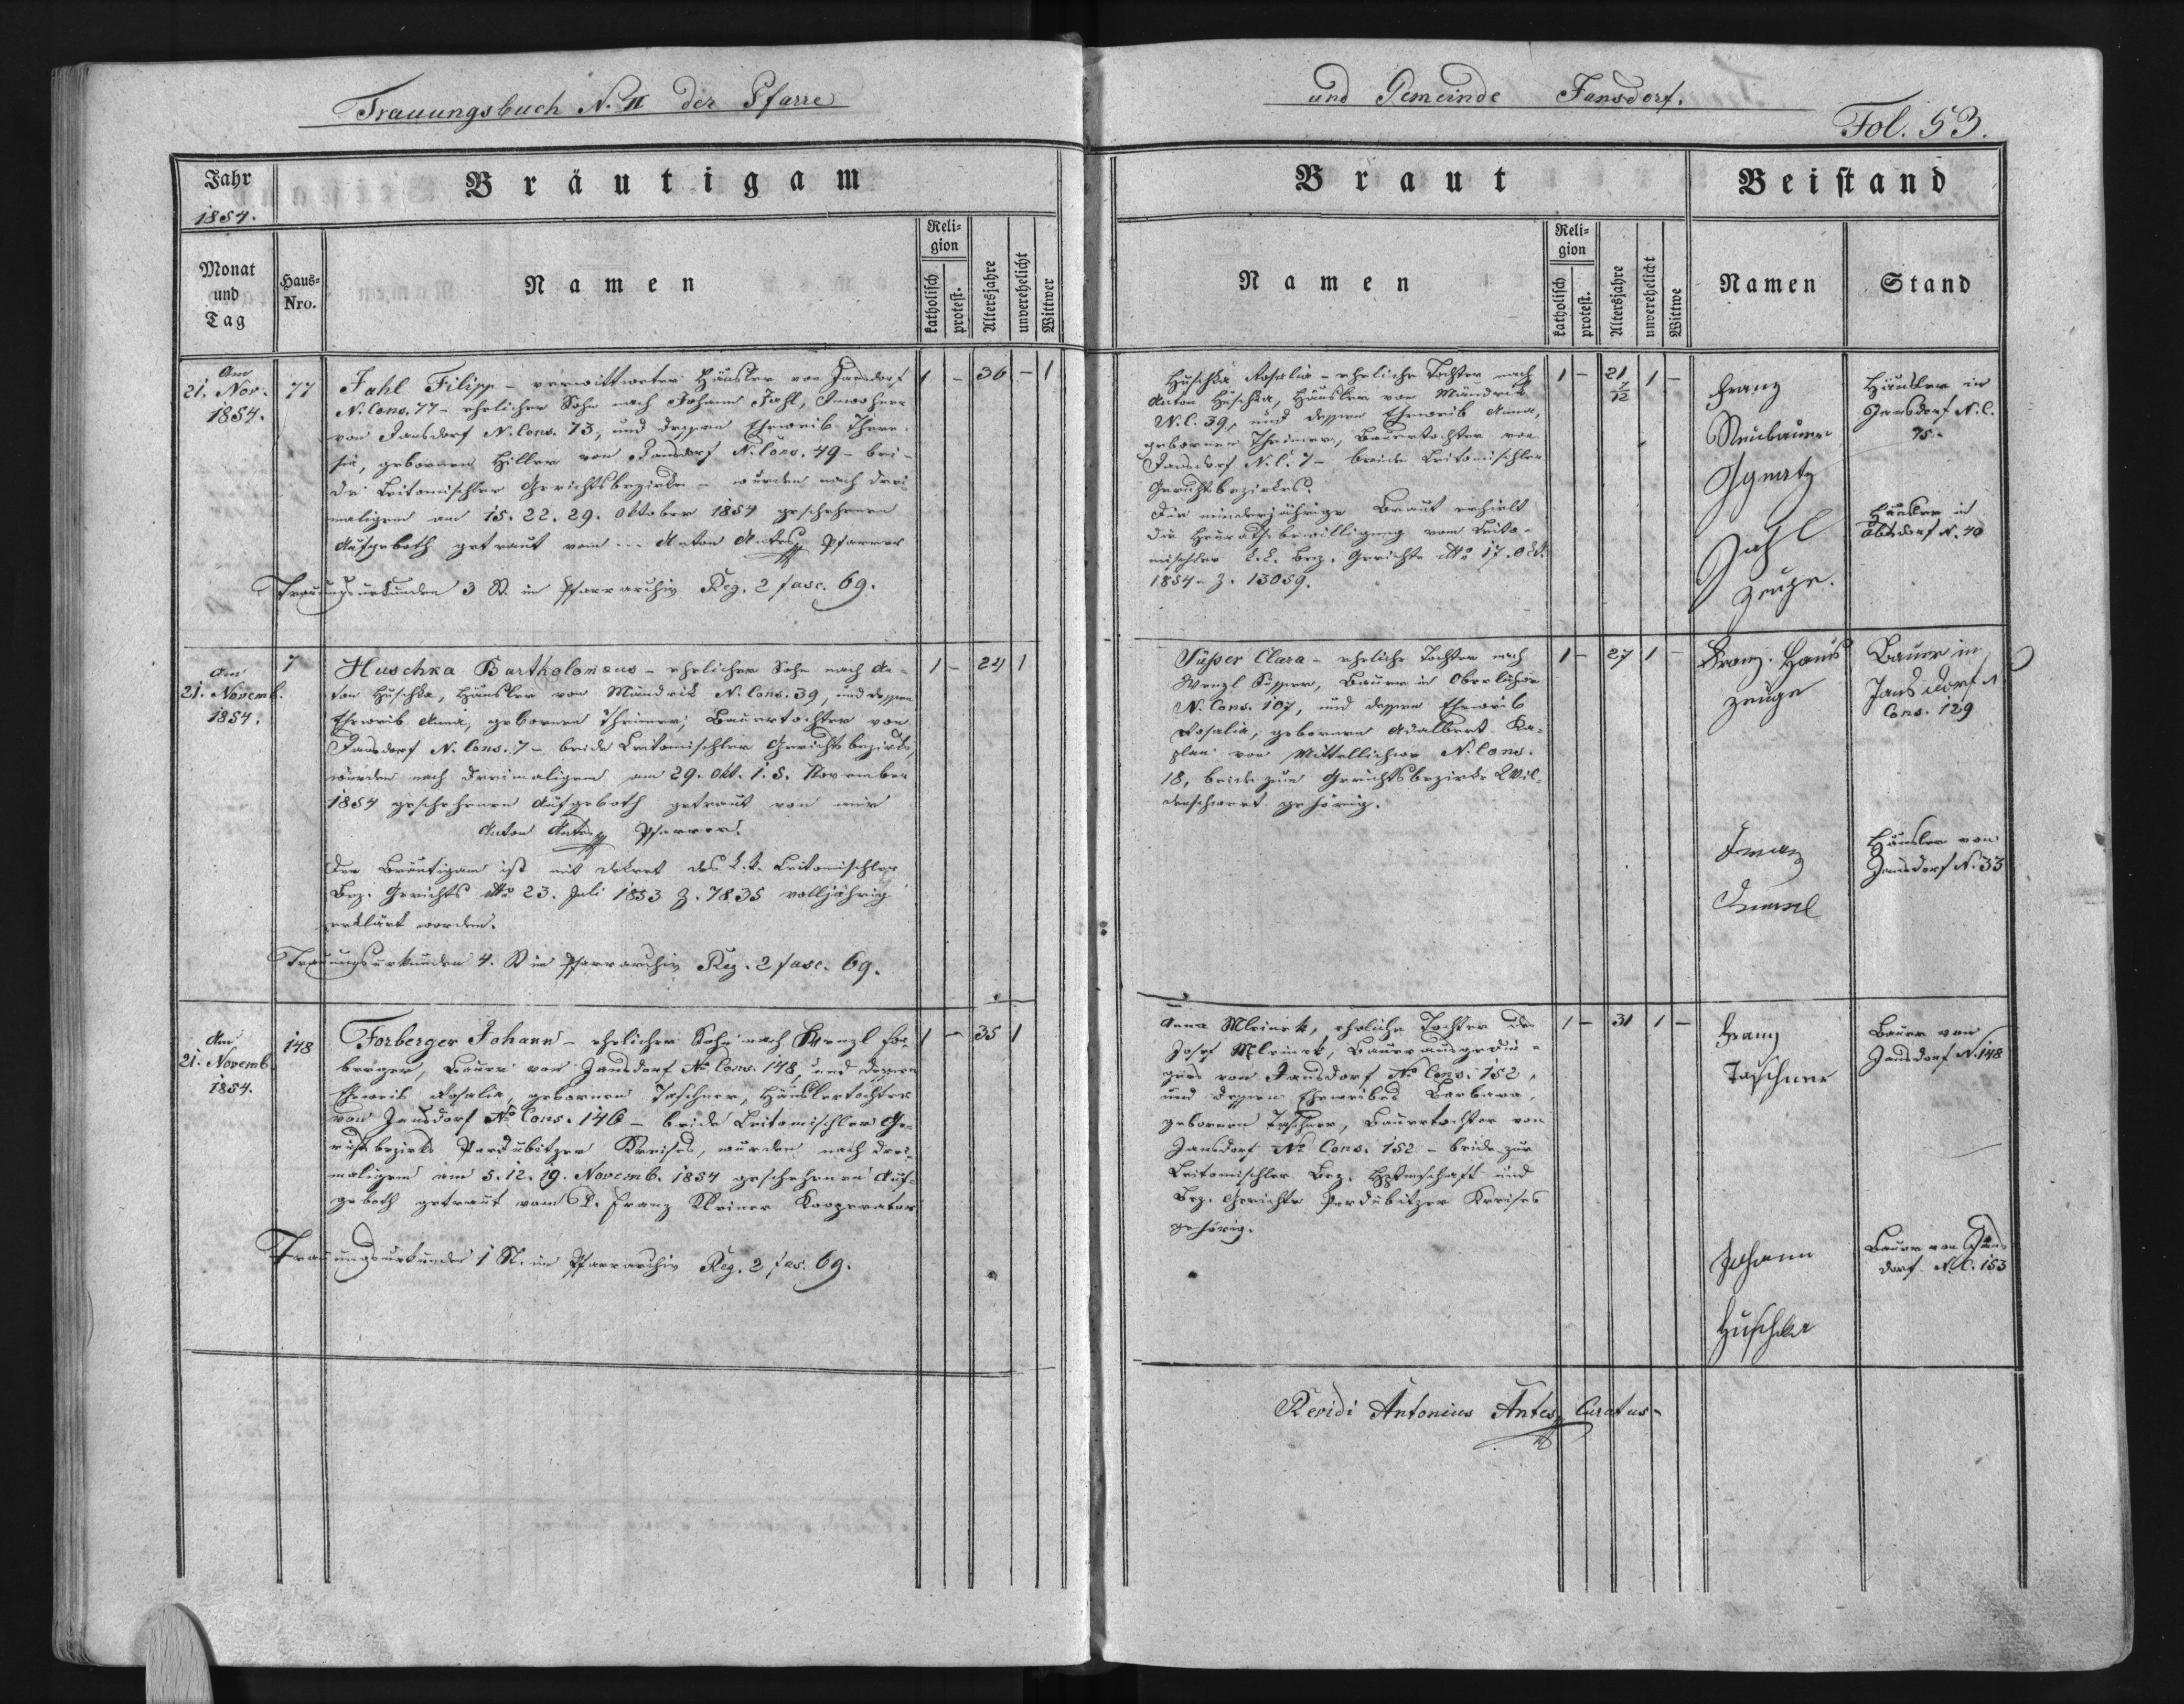 Trauungsbuch N. II der Pfarre
und Gemeinde Jansdorf.
Fol. 53.
Jahr
1854.
Bräutigam
Monat
und
Tag
Haus-
Nro.
Namen
Reli-
gion
katholisch
protest.
Altersjahre
unverehelicht
Wittwer
Braut
Namen
Reli-
gion
katholisch
protest.
Altersjahre
unverehelicht
Wittwe
Beistand
Namen
Stand
Am
21. Nov.
1854.
77
Jahl Filipp - verwittweter Häusler von Jansdorf
N. Cons. 77 - ehelicher Sohn nach Johann Jahl, Inwohner
von Jansdorf N. Cons. 73, und dessen Eheweib There-
sia, gebornen Hiller von Jansdorf N. Cons. 49 - bei-
de Leitomischler Gerichtsbezirks - wurden nach drei
maligem am 15. 22. 29. Oktober 1854 geschehenen
Aufgeboth getraut vom ... Anton Antes Pfarrer
Trauungsurkunden 3 St. im Pfarrarchiv Reg. 2 fasc. 69.
1 - 36 - 1
Huschka Rosalia - eheliche Tochter nach
Anton Huschka, Häusler von Mändrik
N. C. 39, und dessen Eheweib Anna,
gebornen Theimer, Bauertochter von
Jansdorf N. C. 7 - beide Leitomischler
Gerichtsbezirkes.
Die minderjährige Braut erhielt
die Heurathsbewilligung vom Leito-
mischler k. k. Bez. Gerichte dtto 17. Okt.
1854 - Z. 13059.
1 - 21 7/12 1 -
Franz
Neubauer
Ignatz
Jahl
Zeuge.
Häusler in
Jansdorf N. C.
75.
Häusler in
Abtsdorf N. 40
Am
21. Novemb.
1854.
7
Huschka Bartholomæus - ehelicher Sohn nach An-
ton Huschka, Häusler von Mändrik N. Cons. 39, und dessen
Eheweib Anna, gebornen Theimer, Bauertochter von
Jansdorf N. Cons. 7 - beide Leitomischler Gerichtsbezirks,
wurden nach dreimaligem am 29. Okt. 1. 5. November
1854 geschehenen Aufgeboth getraut von mir
Anton Antes Pfarrer.
Der Bräutigam ist mit Dekret des k. k. Leitomischler
Bez. Gerichts dtto 23. Juli 1853 Z. 7835 volljährig
erklärt worden.
Trauungsurkunden 4. St im Pfarrarchiv Reg. 2 fasc. 69.
1 - 24 1
Süßer Clara - eheliche Tochter nach
Wenzl Süsser, Bauer in Oberlichwe
N. Cons. 107, und dessen Eheweib
Rosalia, gebornen Adalbert Ka-
plan von Mittellichwe N. Cons.
18, beide zum Gerichtsbezirke Wil-
denschwert gehörig.
1 - 27 1 -
Franz Haus
Zeuge
Bauer in
Jansdorf N
Cons. 129
Franz
Häusler von
Jansdorf N. 33
Am
21. Novemb.
1854.
148
Forberger Johann - ehelicher Sohn nach Wenzl For-
berger, Bauer von Jansdorf No Cons. 148, und dessen
Eheweib Rosalia, gebornen Taschner, Häuslertochter
von Jansdorf No Cons. 146 - beide Leitomischler Ge-
richtsbezirks Pardubitzer Kreises, wurden nach drei-
maligem am 5. 12. 19. Novemb. 1854 geschehenen Auf-
geboth getraut vom P. Franz Kleiner Kooperator
Trauungsurkunde 1 St. im Pfarrarchiv Reg. 2 fas. 69.
1 - 35 1
Anna Mleinek, eheliche Tochter des
Josef Mleinek, Bauerausgedin-
gers von Jansdorf No Cons. 152,
und dessen Eheweibes Barbara,
gebornen Taschner, Bauertochter von
Jansdorf No Cons. 152 - beide zur
Leitomischler Bez. Hptmschaft und
Bez. Gerichte Pardubitzer Kreises
gehörig.
1 - 31 1 -
Franz
Taschner
Bauer von
Jansdorf N. 148
Johann
Huschka
Bauer von Jans-
dorf N. C. 153
Revidi Antonius Antes Curatus